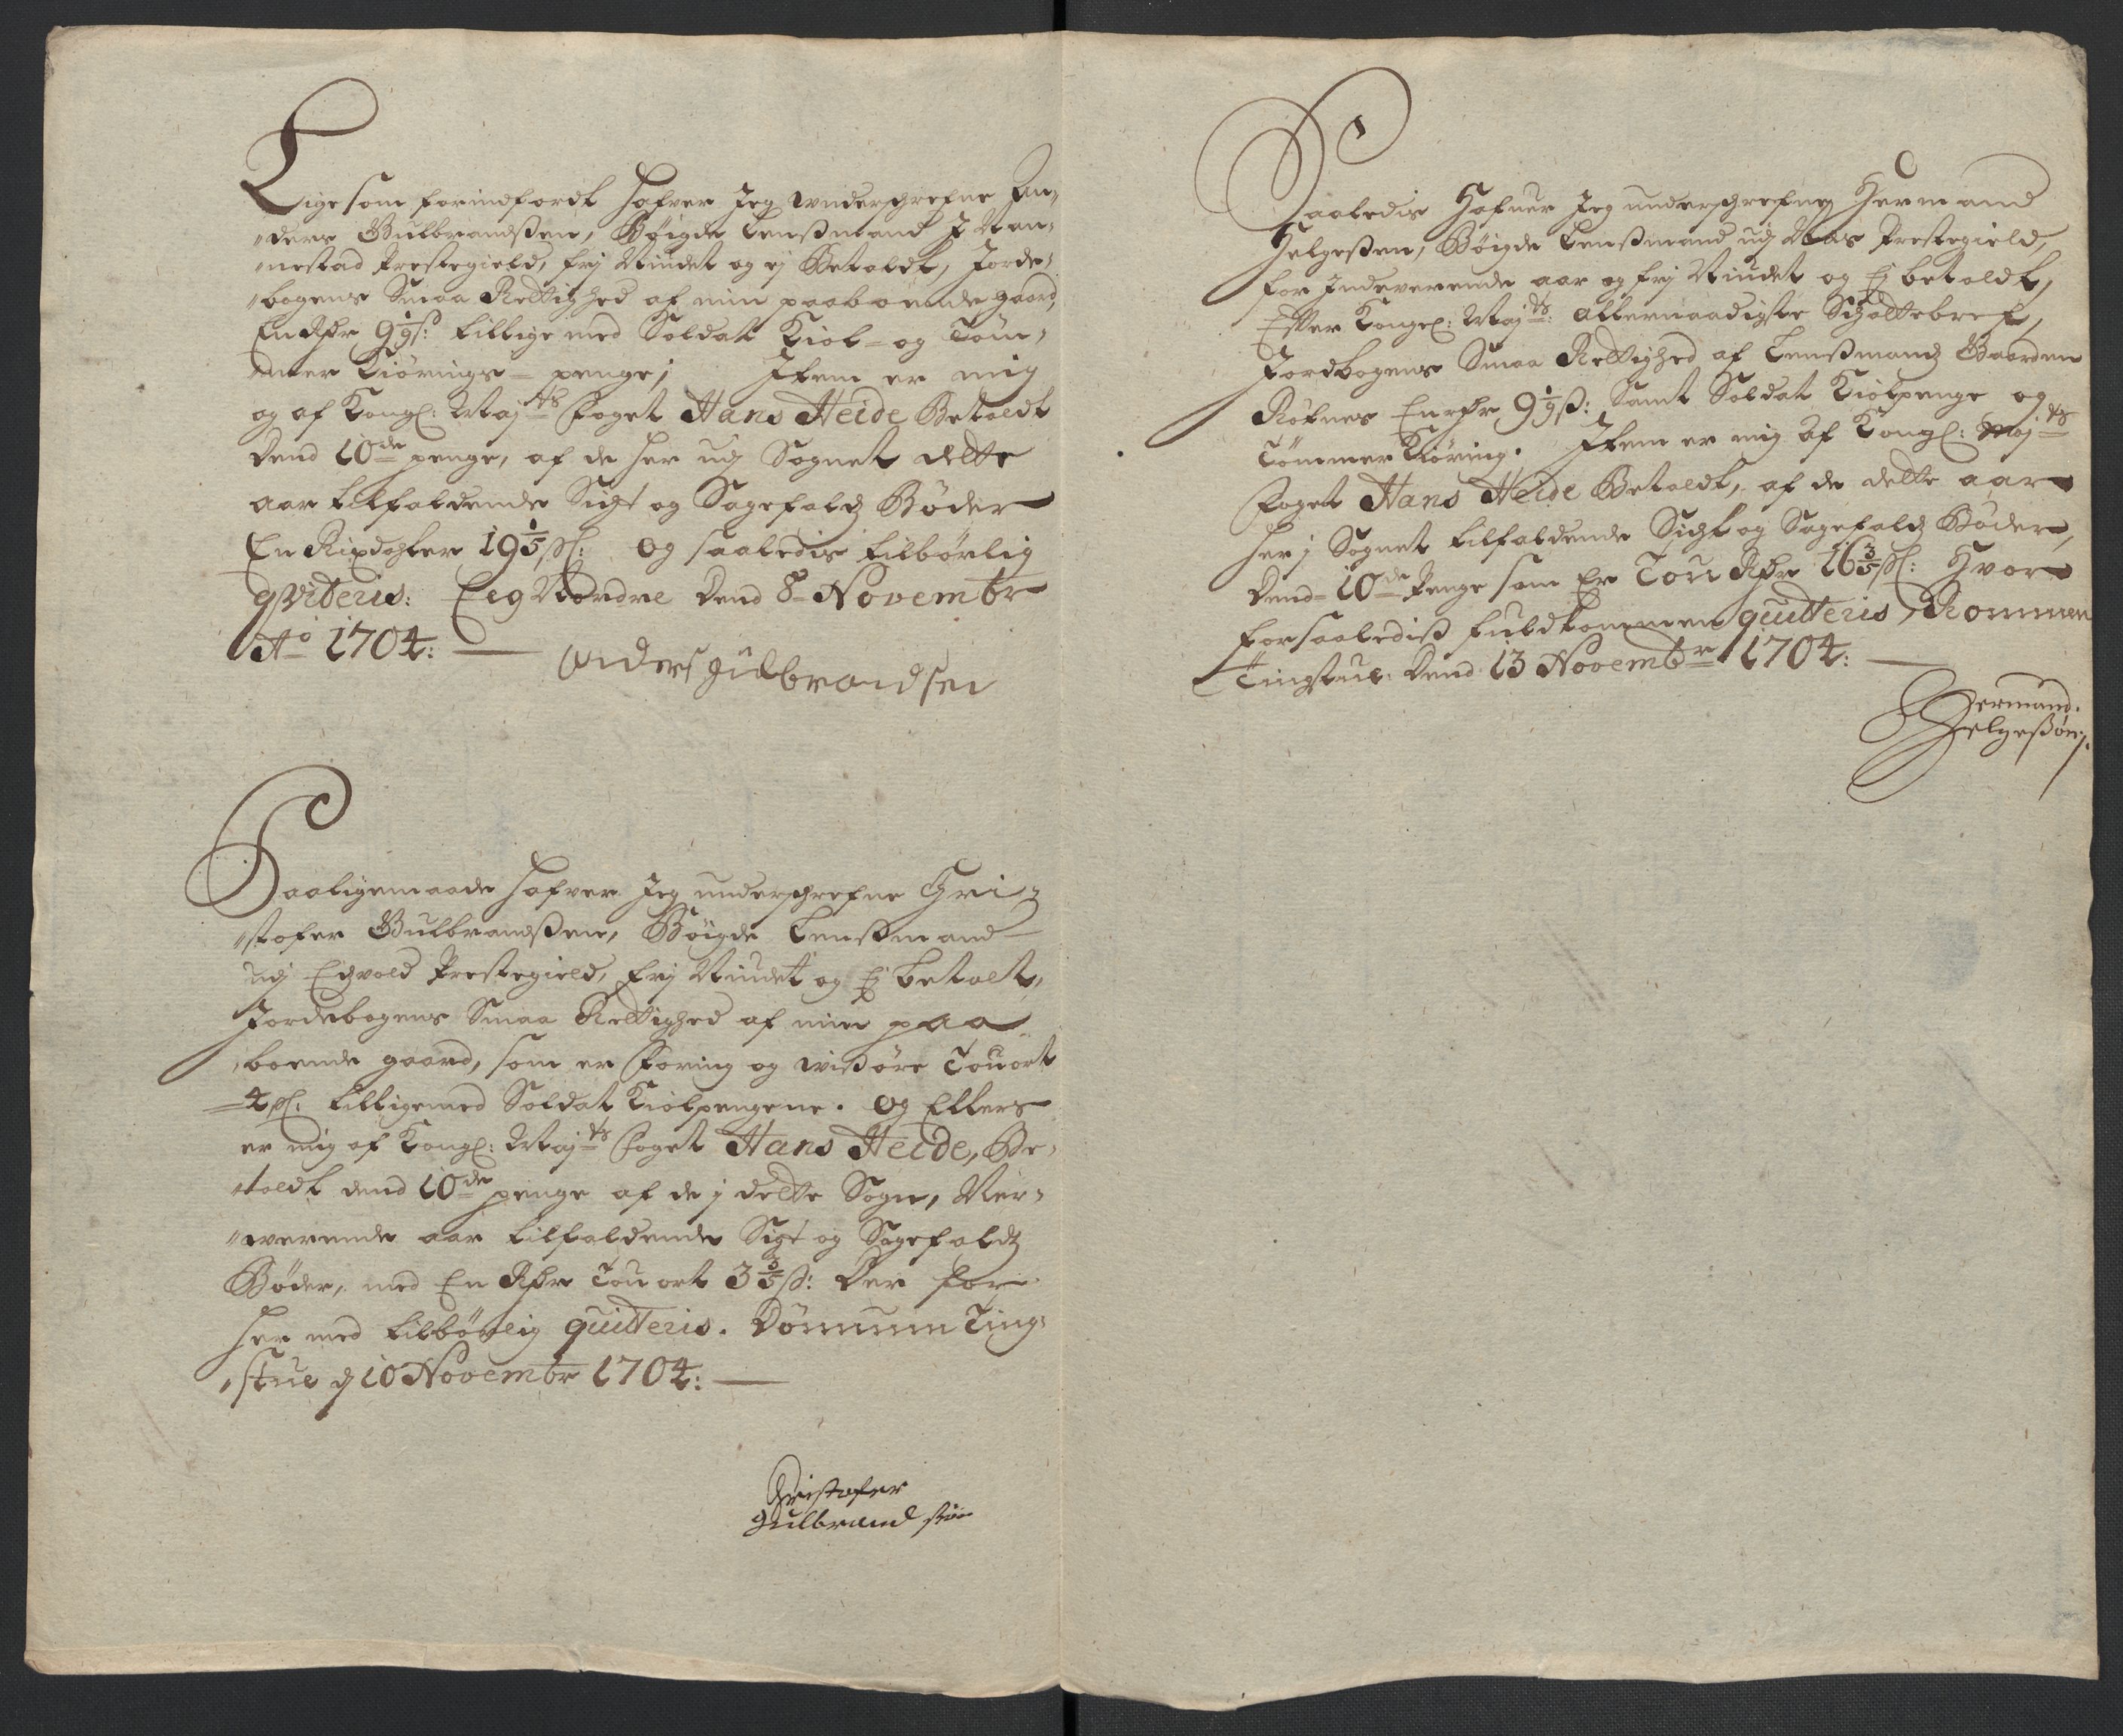 Ligesom forindfordt hafver Jeg underschrefne An-
ders Gulbrandßen, Böigde Lenßmand J Nan-
nestad Prestegield, frj Niudet og ej Betaldt, Jorde-
bogens Smaa Rettighed af min paaboende gaard,
En Rdr 9 1/9 s: tillige med Soldat Kiol- og Töm-
mer Kiörings- penge; Item er mig
og af Kongl: Maj:ts Foget Hans Heide Betaldt
Dend 10de penge, af de her udj Sognet dette
aar tilfaldende Sigt og Sagefaldz Böder
En Rixdahler 19 1/5 sl: og saaledis tilbörlig
qviteris: Eeg Nordre Dend 8 Novembr
Ao 1704:
Anders gulbrandsen
Saaligemaade hafver Jeg underschrefne Cri-
stofer Gulbrandßen, Böigde Lenßmand
udj Eidzvold Prestegield, frj Niudet og Ej betalt,
Jordebogens Smaa Rettighed af min paa
boende gaard, som er Foring og wisöre Tou ort
4 sl: tilligemed Soldat Kiolpengene. og Ellers
er mig af Kongl: Maj:ts Foget Hans Heide, Be-
taldt dend 10de penge af de j dette Sogn, Ner-
werende aar tilfaldende Sigt og Sagefaldz
Böder, med En Rdr Tou ort 3 3/5 s: Der for
her med tilbörlig quitteris. Dömmum Ting-
stue d 10 Novembr 1704:
Cristofer
gulbrand sön
Saaledis Hafuer Jeg underschrefne Hermand
Helgeßen, Böigde Lenßmand udj Næs Prestegield,
for Indeverende aar og frj Niudet og Ej betaldt,
Efter Kongl: Maj:ts: allernaadigste Schattebref,
Jordbogens Smaa Rettighed af Lenßmandz Gaarden
Röfnes En rdr 9 1/9 s: Samt Soldat Kiolpenge og
Tömmer Kiöring. Item er mig af Kongl: Maj:ts
Foget Hans Heide Betaldt, af de dette aar
her j Sognet tilfaldende Sigt og Sagefaldz Böder,
Dend 10de Penge som Er Tou Rdr 16 3/5 sl: Hvor
for saalediß fuldkommen quitteris, Rommen
Tingstue. Dend 13 Novembr 1704:
Hermand
Helgeßön